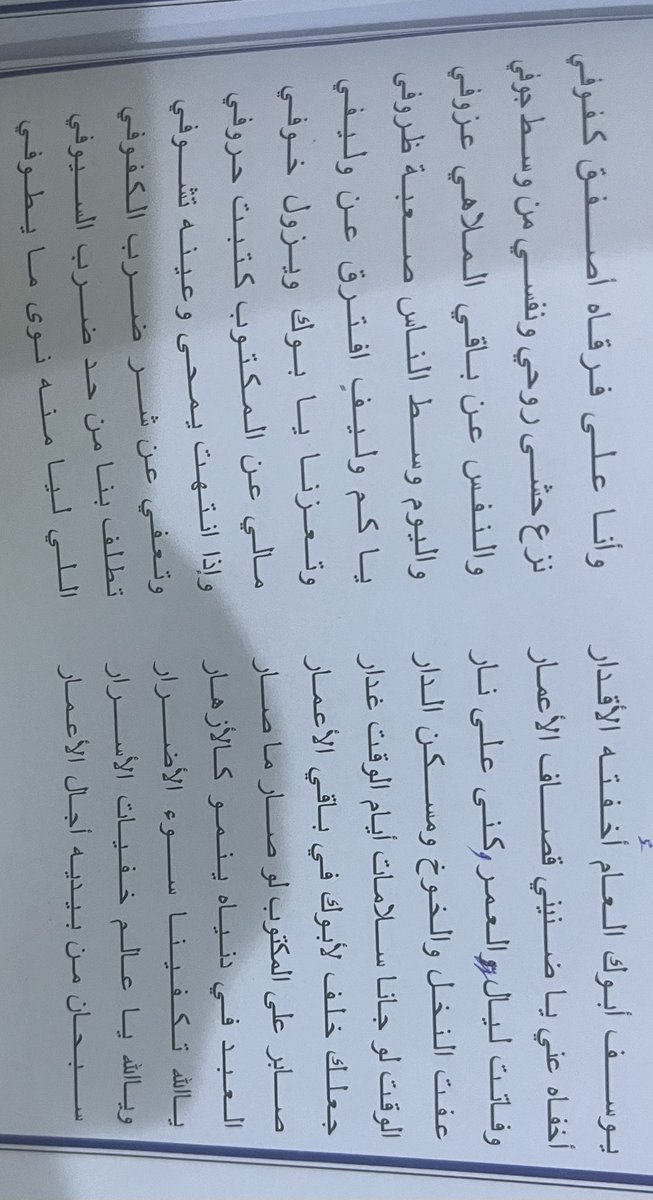 يوسف أبوك العام أخفته الأقدار وأنا على فرقاه أصفق كفوفي
أخفاه عني يا ضنيني قصاف الأعمار نزع حشى روحي ونفسي من وسط جوفي
وفاتت ليال العمر وكنى على نار والنفس عن باقي الملاهي عزوفي
عفت النخل والخوخ ومسكن الدار واليوم وسط الناس صعبة ظروفي
الوقت لو جانا سلامات أيام الوقت غدار يا كم وليفٍ افترق عن وليفي
جعلك خلف لأبوك في باقي الأعمار وتعزنا يا بوك ويزول خوفي
صابر على المكتوب لو صار ما صار مالي عن المكتوب كتبت حروفي
العبد في دنياه ينمو كالأزهار وإذا انتهت يمحى وعينه تشوفي
ياالله تكفينا سوء الأضرار وتعفي عن شر ضرب الكفوفي
وياالله يا عالم خفيات الأسرار تطلف بنا من حد ضرب السيوفي
سبحان من بيديه أجال الأعمار اللي ليا منه نوى ما يطوفي